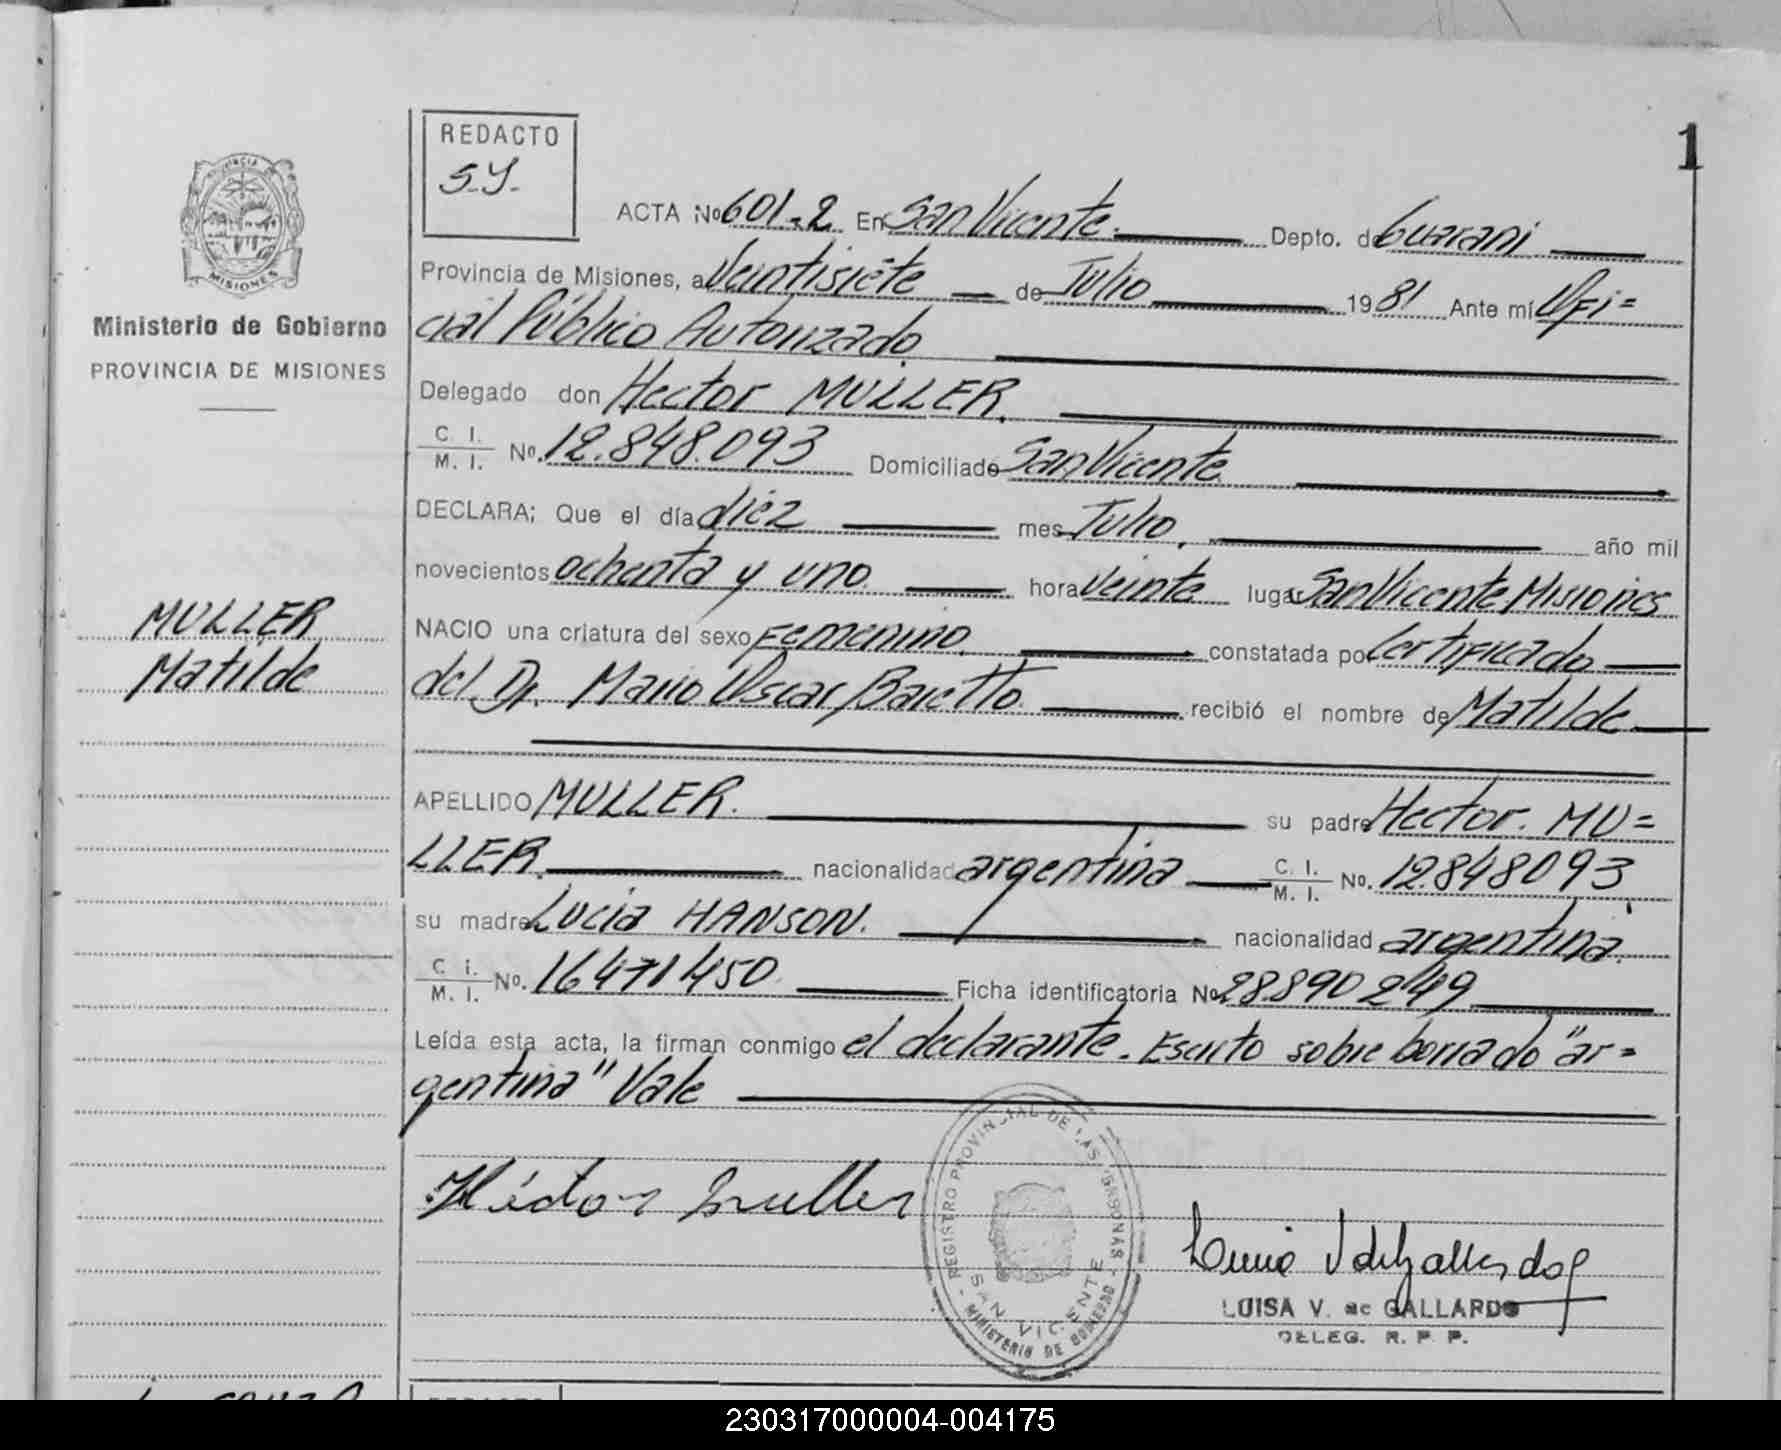 1
REDACTO
S.Y.
PROVINCIA
MISIONES
Ministerio de Gobierno
PROVINCIA DE MISIONES
MULLER
Matilde
ACTA Nº 601-2 En San Vicente. Depto. de Guarani
Provincia de Misiones, a Veintisiete de Julio 1981 Ante mí Ofi=
cial Público Autorizado.
Delegado don Hector MULLER.
C. I. / M. I. Nº. 12.848.093 Domiciliado San Vicente
DECLARA; Que el día diez mes Julio. año mil
novecientos ochenta y uno. hora veinte lugar San Vicente Misiones
NACIO una criatura del sexo Femenino. constatada por Certificado
del Dr. Mario Oscar Baretto. recibió el nombre de Matilde
APELLIDO MULLER. su padre Hector. MU=
LLER. nacionalidad argentina C. I. / M. I. Nº. 12848093
su madre Lucia HANSON. nacionalidad argentina.
C i. / M. I. Nº. 16471450 Ficha identificatoria Nº 28890249
Leída esta acta, la firman conmigo el declarante. Escrito sobre borrado "ar=
gentina" Vale
Héctor Muller
REGISTRO PROVINCIAL DE LAS PERSONAS
SAN VICENTE
MINISTERIO DE GOBIERNO
LUISA V. de GALLARDO
DELEG. R. P. P.
230317000004-004175